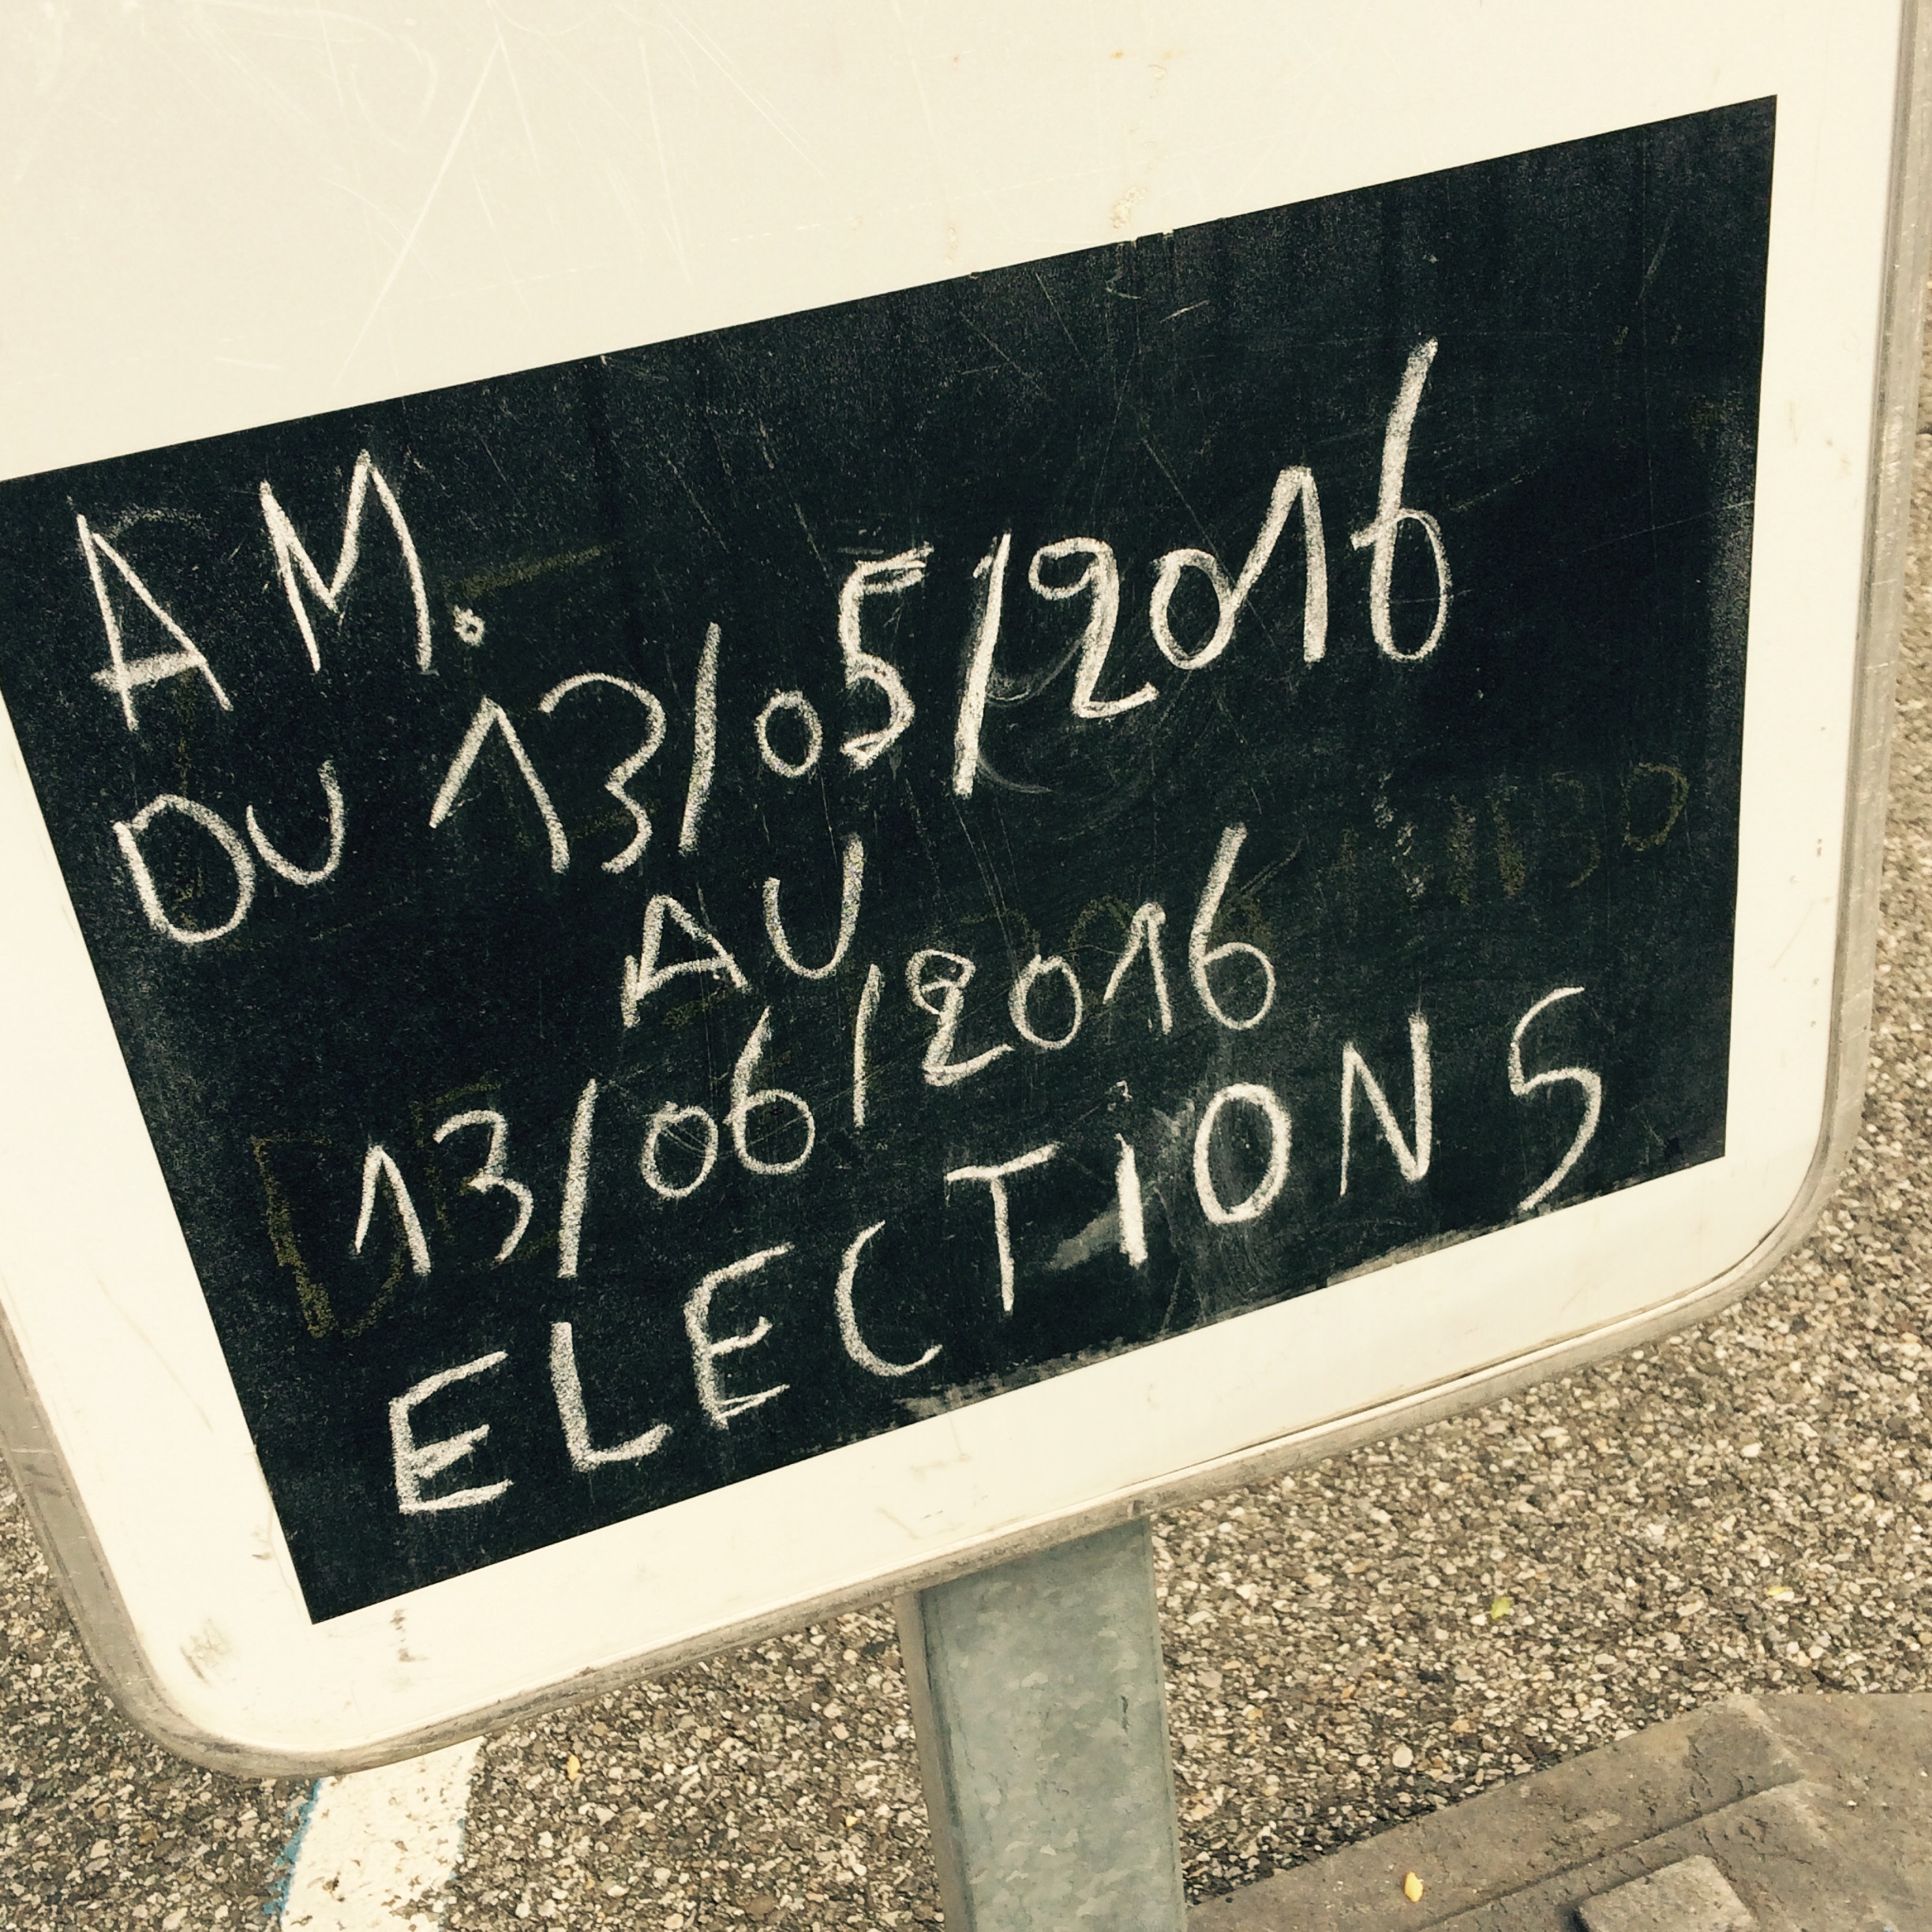 A M.
DU 13/05/2016
AU
13/06/2016
ELECTIONS